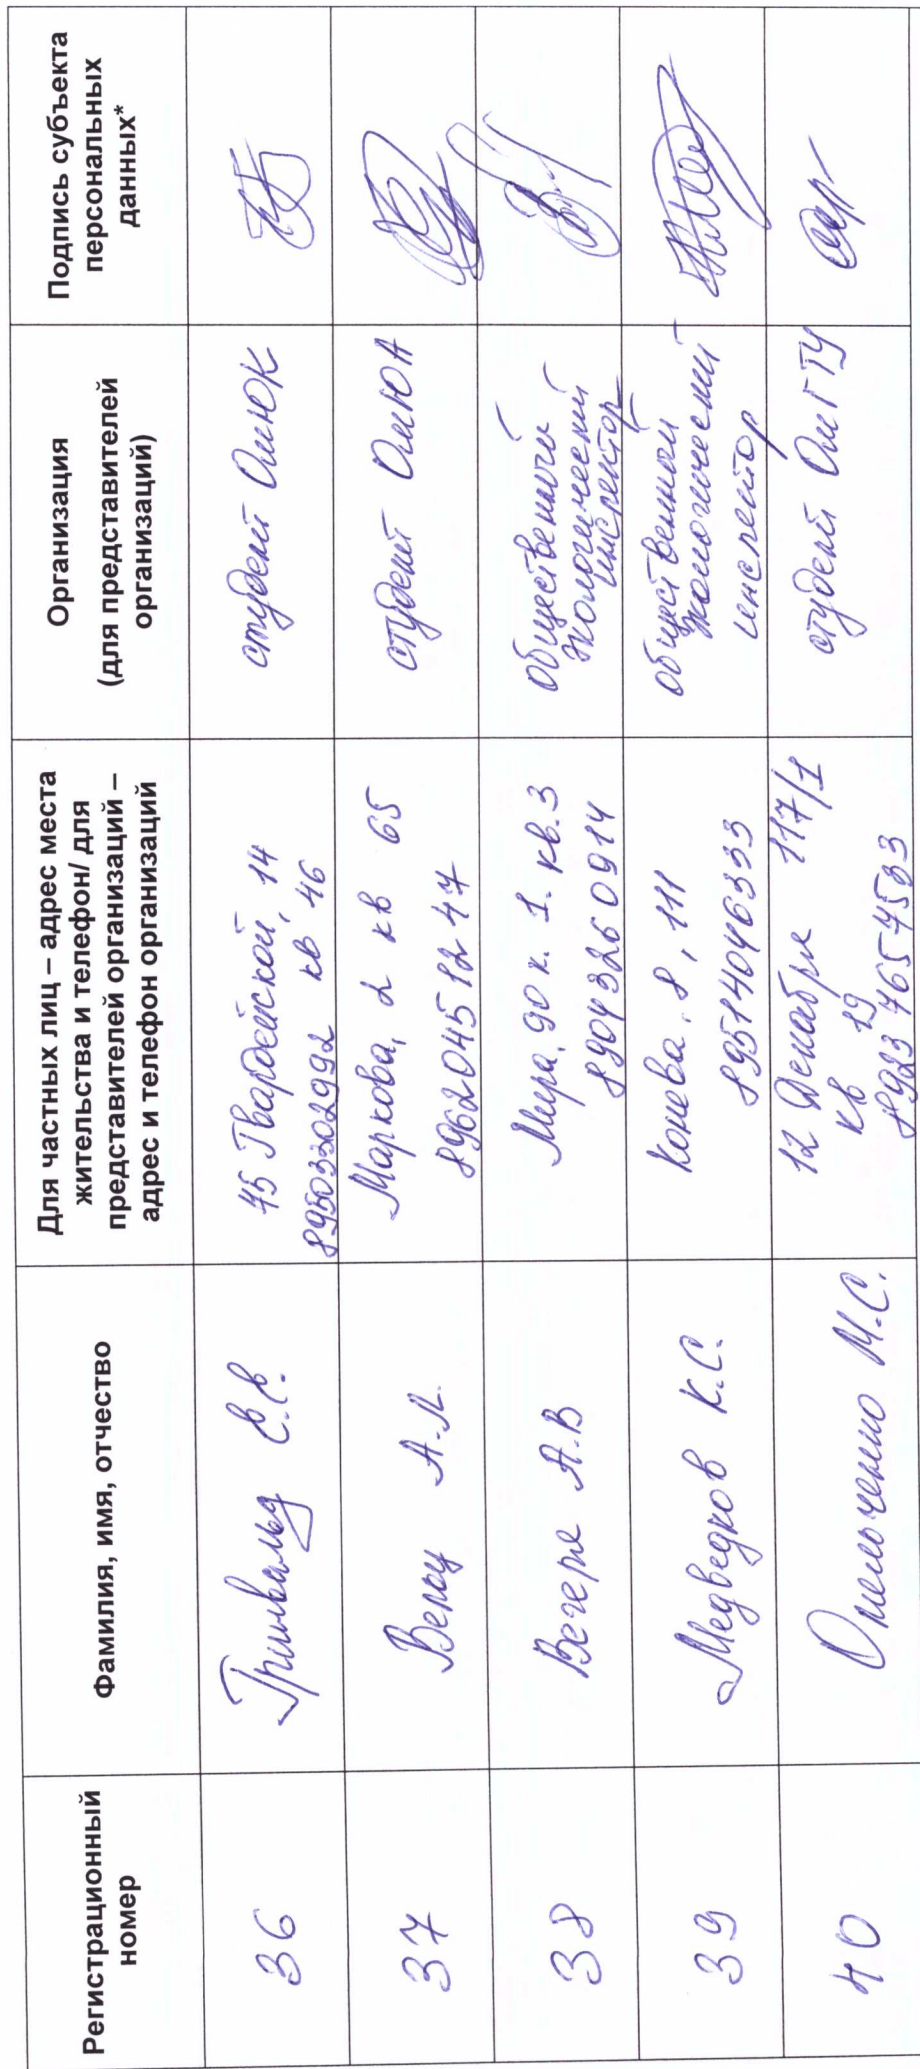 Регистрационный
номер
Фамилия, имя, отчество
Для частных лиц – адрес места
жительства и телефон/ для
представителей организаций –
адрес и телефон организаций
Организация
(для представителей
организаций)
Подпись субъекта
персональных
данных*
36
Гринвальд С.В.
45 Гвардейской, 14
кв 46
89503302992
студент ОмЮК
37
А.Л.
Маркова, 2 кв 65
89620451247
студент ОмЮА
38
Вегеря А.В
Мира, 90 к. 1. кв. 3
89043260914
общественный
экологический
инспектор
39
Медведков К.С.
Конева, 8, 111
89514046333
общественный
экологический
инспектор
40
Омельченко М.С.
12 Декабря 117/1
кв 19
89237657533
студент ОмГТУ